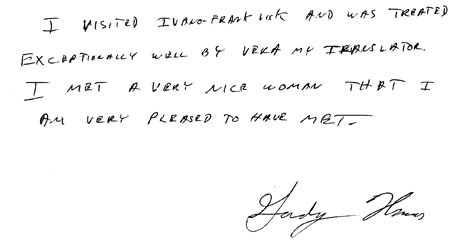 I VISITED IVANO-FRANKVISK AND WAS TREATED
EXCEPTIONALLY WELL BY VERA MY TRANSLATOR.
I MET A VERY NICE WOMAN THAT I
AM VERY PLEASED TO HAVE MET.
Gordy